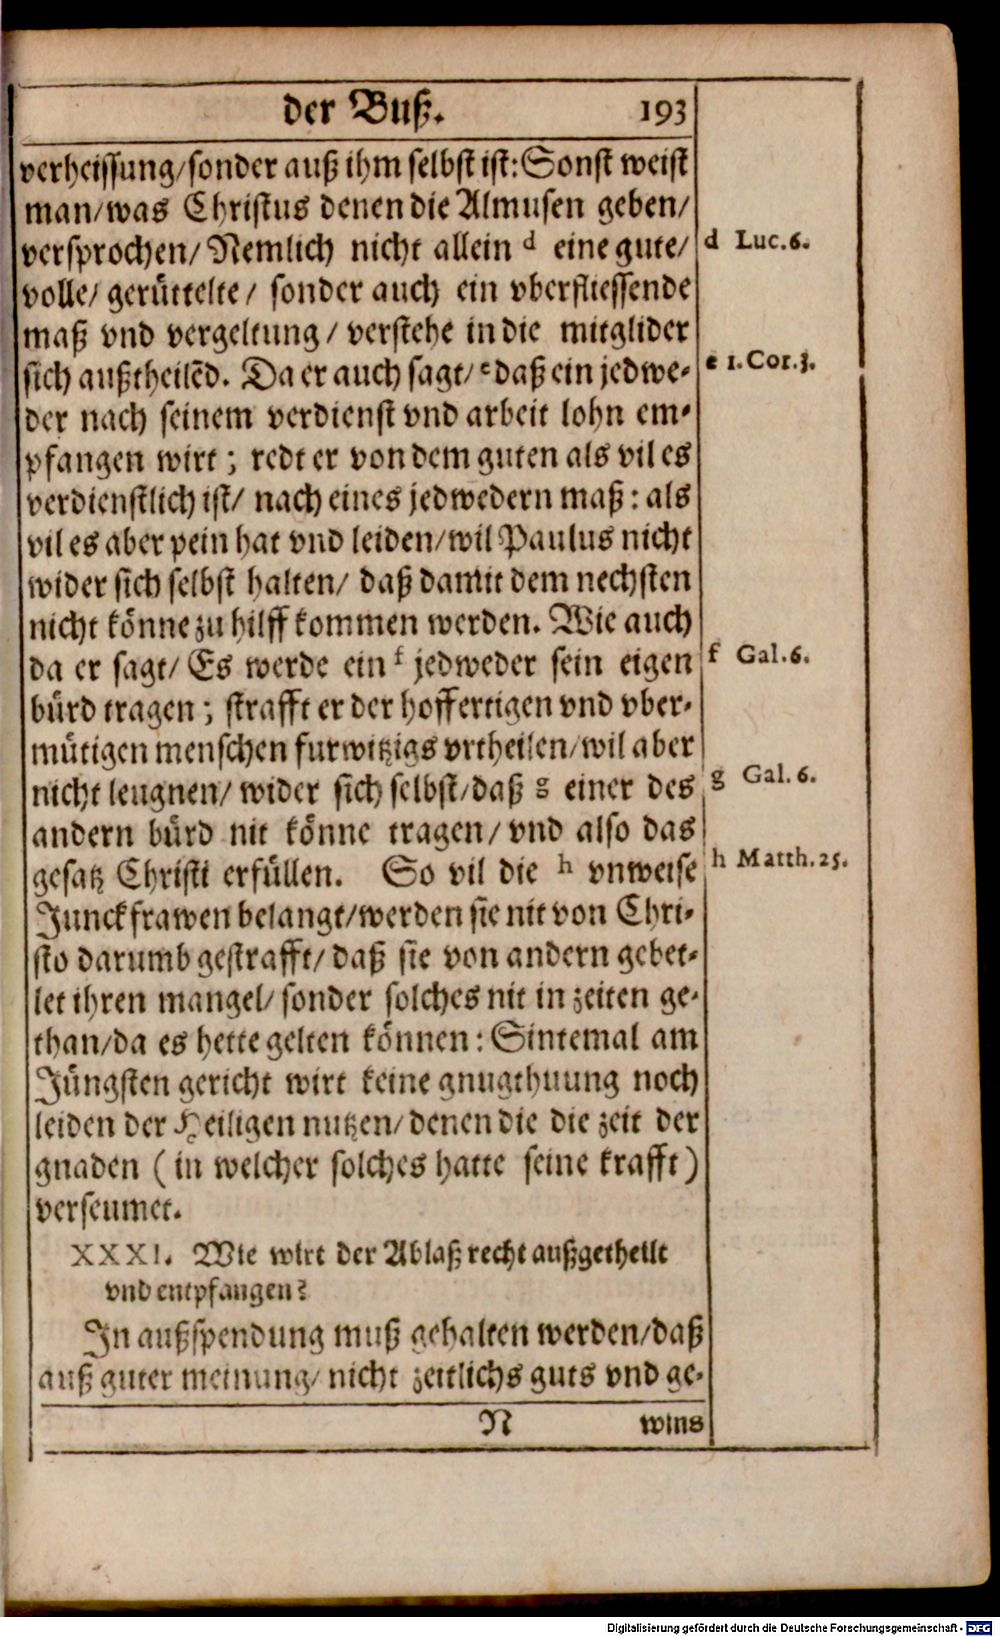 der Buß. 193
verheissung/sonder auß ihm selbst ist: Sonst weist
man/was Christus denen die Almusen geben/
versprochen/ Nemlich nicht allein d eine gute/
d Luc.6.
volle/ gerüttelte/ sonder auch ein vberfliessende
maß vnd vergeltung/ verstehe in die mitglider
sich außtheilēd. Da er auch sagt/ e daß ein jedwe-
e 1.Cor.3.
der nach seinem verdienst vnd arbeit lohn em-
pfangen wirt; redt er von dem guten als vil es
verdienstlich ist/ nach eines jedwedern maß: als
vil es aber pein hat vnd leiden/wil Paulus nicht
wider sich selbst halten/ daß damit dem nechsten
nicht könne zu hilff kommen werden. Wie auch
da er sagt/ Es werde ein f jedweder sein eigen
f Gal.6.
bürd tragen; strafft er der hoffertigen vnd vber-
mütigen menschen furwitzigs vrtheilen/wil aber
nicht leugnen/ wider sich selbst/daß g einer des
g Gal.6.
andern bürd nit könne tragen/ vnd also das
gesatz Christi erfüllen. So vil die h vnweise
h Matth.25.
Junckfrawen belangt/werden sie nit von Chri-
sto darumb gestrafft/ daß sie von andern gebet-
let ihren mangel/ sonder solches nit in zeiten ge-
than/da es hette gelten können: Sintemal am
Jüngsten gericht wirt keine gnugthuung noch
leiden der Heiligen nutzen/denen die die zeit der
gnaden (in welcher solches hatte seine krafft)
verseumet.
XXXI. Wie wirt der Ablaß recht außgetheilt
vnd entpfangen?
In außspendung muß gehalten werden/daß
auß guter meinung/ nicht zeitlichs guts vnd ge-
N wins
Digitalisierung gefördert durch die Deutsche Forschungsgemeinschaft - DFG